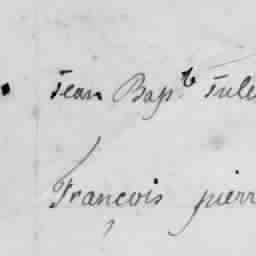 Jean Bap.te Tule
François pierr